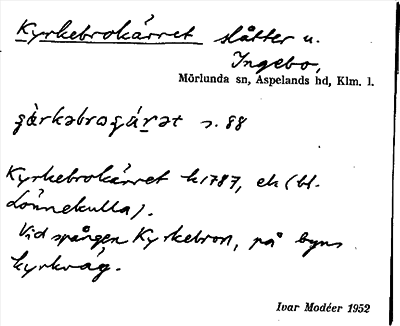 Kyrkebrokärret slåtter u.
Ingebo,
Mörlunda sn, Aspelands hd, Klm. l.
s. 88
Kyrkebrokärret k1787, ek (bl.
Lönnekulla).
Vid spången Kyrkebron, på byns
kyrkväg.
Ivar Modéer 1952